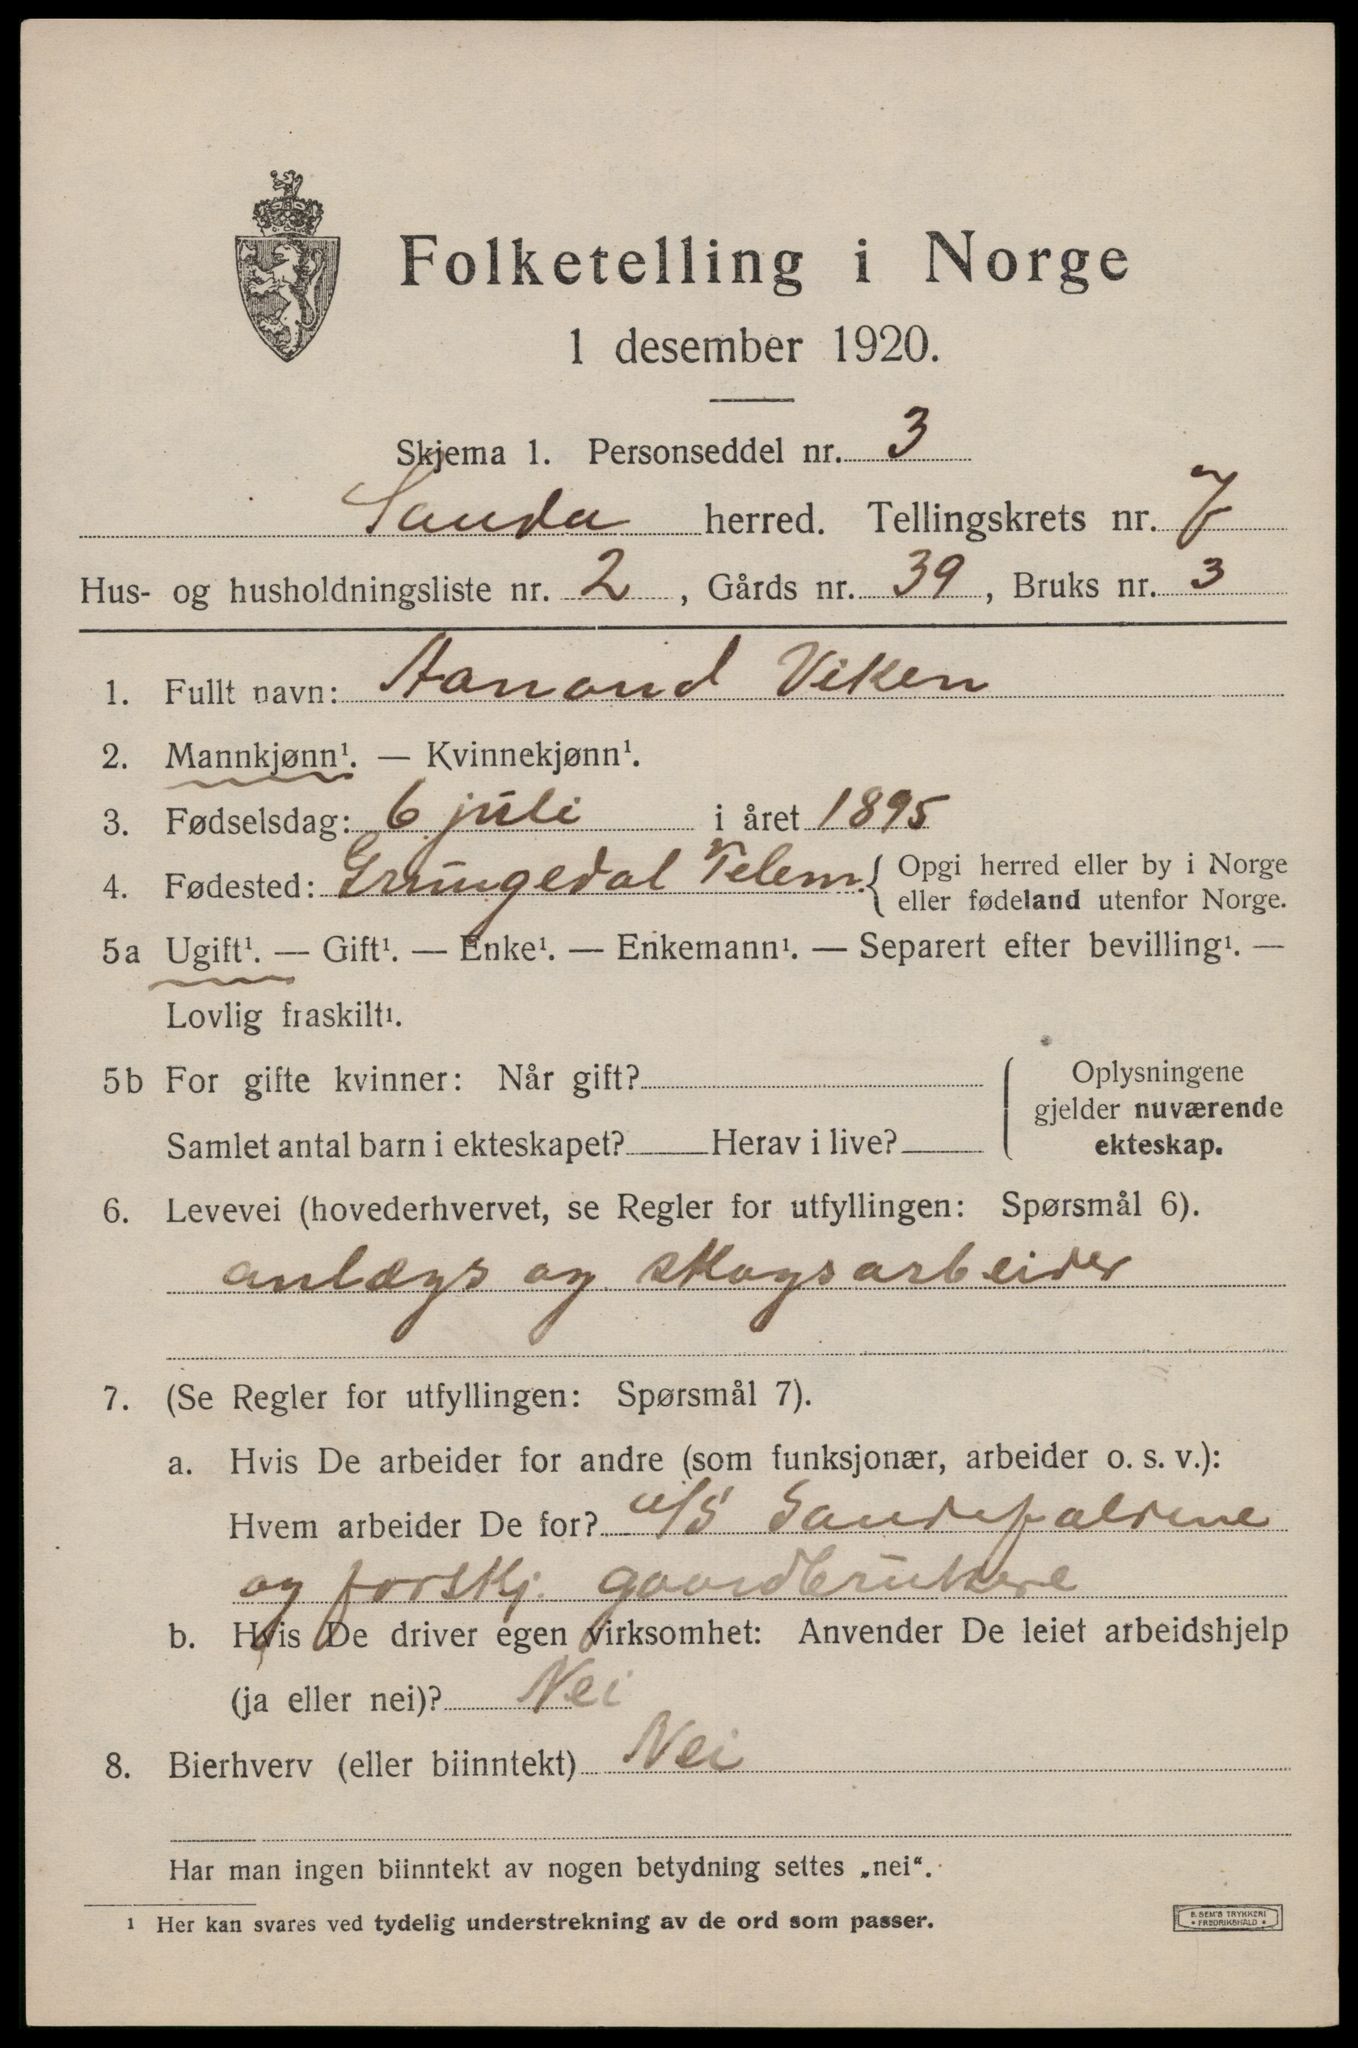 Folketelling i Norge
1 desember 1920.
Skjema 1. Personseddel nr. 3
Sauda herred. Tellingskrets nr. 7
Hus- og husholdningsliste nr. 2, Gårds nr. 39, Bruks nr. 3
1. Fullt navn: Aanond Viken
2. Mannkjønn¹. — Kvinnekjønn¹.
3. Fødselsdag: 6 juli i året 1895
4. Fødested: Grungedal Telem. { Opgi herred eller by i Norge
eller fødeland utenfor Norge.
5a Ugift¹. — Gift¹. — Enke¹. — Enkemann¹. — Separert efter bevilling¹. —
Lovlig fraskilt¹.
5b For gifte kvinner: Når gift?
Samlet antal barn i ekteskapet? Herav i live?
Oplysningene
gjelder nuværende
ekteskap.
6. Levevei (hovederhvervet, se Regler for utfyllingen: Spørsmål 6).
anlægs og skogsarbeider
7. (Se Regler for utfyllingen: Spørsmål 7).
a. Hvis De arbeider for andre (som funksjonær, arbeider o. s. v.):
Hvem arbeider De for? a/s Saudefaldene
og forskj. gaardbrukere
b. Hvis De driver egen virksomhet: Anvender De leiet arbeidshjelp
(ja eller nei)? Nei
8. Bierhverv (eller biinntekt) Nei
Har man ingen biinntekt av nogen betydning settes „nei“.
¹ Her kan svares ved tydelig understrekning av de ord som passer.
E. SEM'S TRYKKERI
• FREDRIKSHALD •